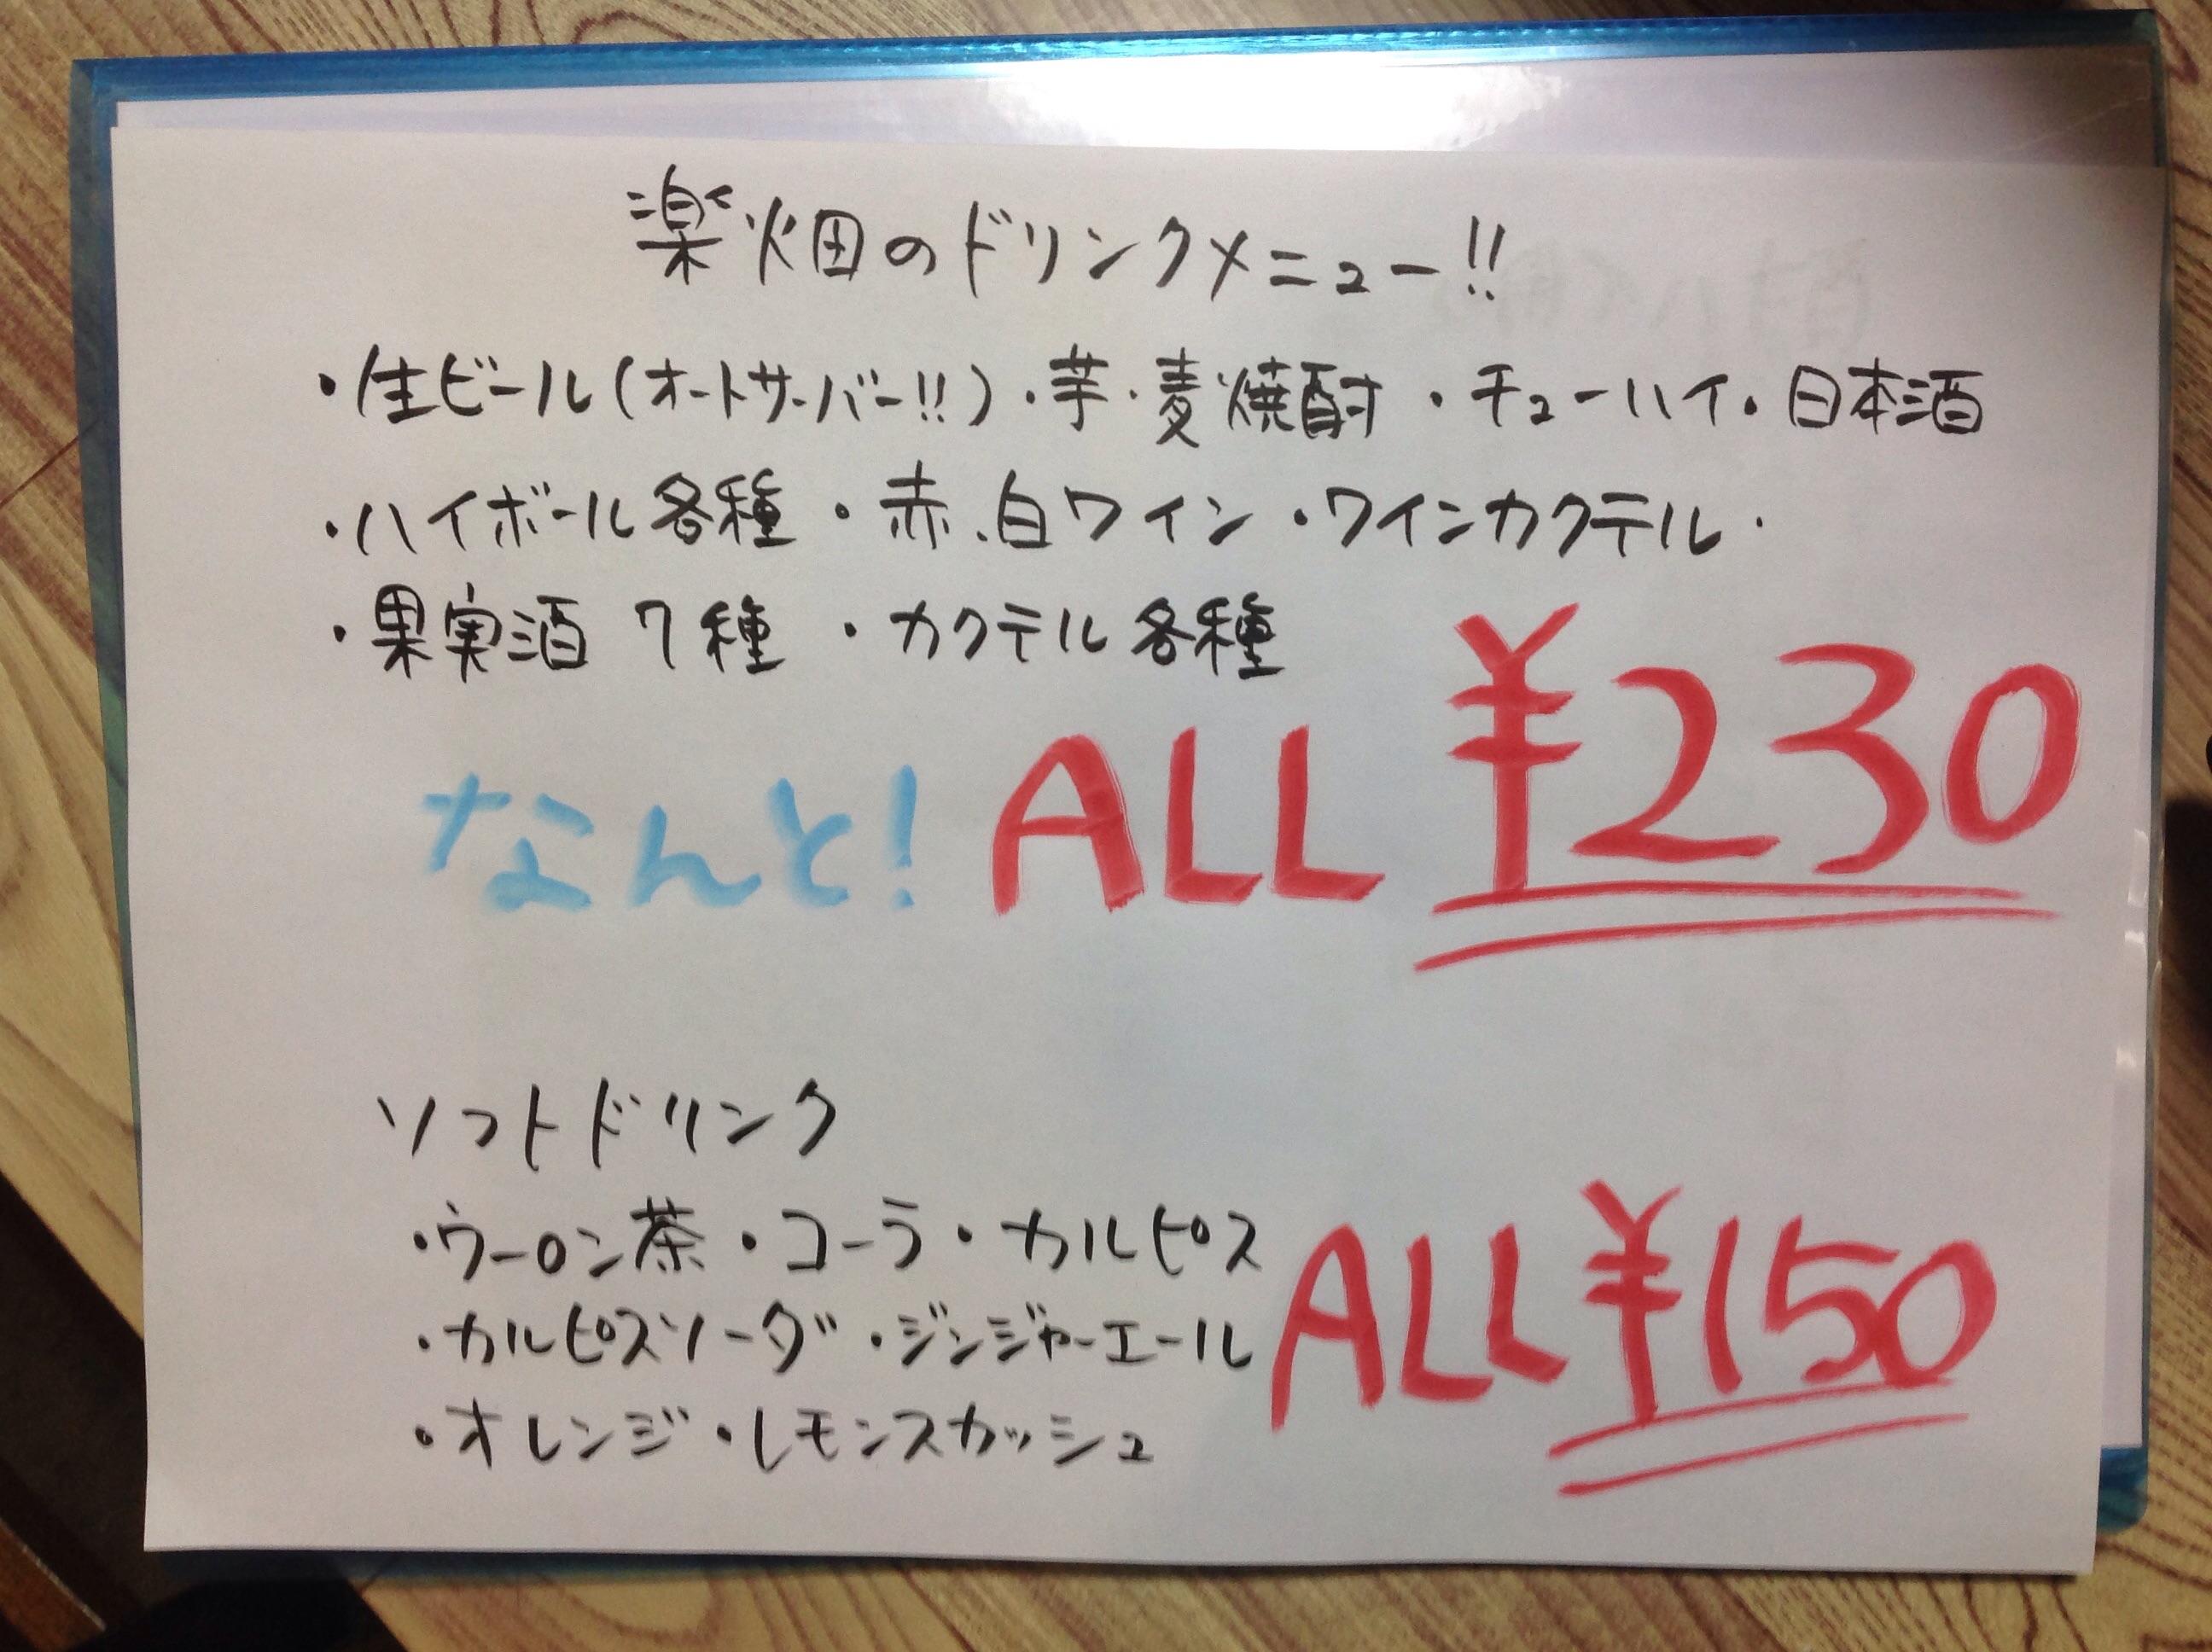 楽畑のドリンクメニュー!!
・生ビール(オートサーバー!!)・芋・麦焼酎・チューハイ・日本酒
・ハイボール各種・赤、白ワイン・ワインカクテル・
・果実酒 7種・カクテル各種
なんと! ALL ¥230
ソフトドリンク
・ウーロン茶・コーラ・カルピス
・カルピスソーダ・ジンジャーエール
ALL ¥150
・オレンジ・レモンスカッシュ